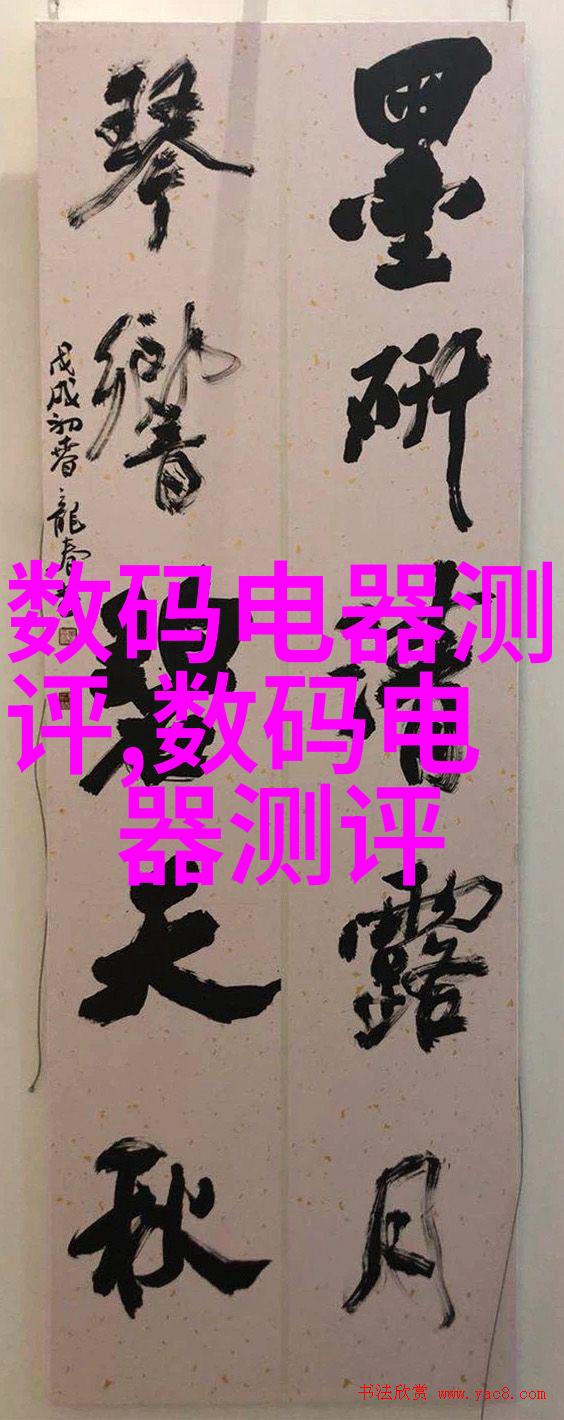 墨研清露月
琴響碧天秋
戊戌初春龍春
数码电器测
评,数码电
器测评
书法欣赏 www.yac8.com